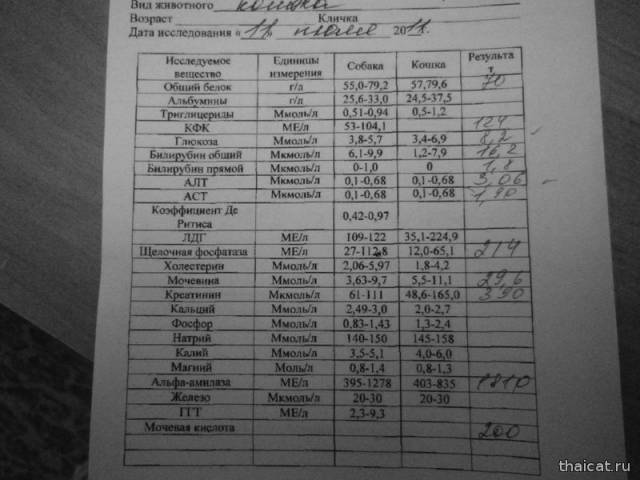 Вид животного кошка
Возраст Кличка
Дата исследования « 11 июля 2011г.
Исследуемое вещество Единицы измерения Собака Кошка Результат
Общий белок г/л 55,0-79,2 57,79,6 70
Альбумины г/л 25,6-33,0 24,5-37,5
Триглицериды Ммоль/л 0,51-0,94 0,5-1,2
КФК МЕ/л 53-104,1 124
Глюкоза Ммоль/л 3,8-5,7 3,4-6,9 8,2
Билирубин общий Мкмоль/л 6,1-9,9 1,2-7,9 16,2
Билирубин прямой Мкмоль/л 0-1,0 0 1,8
АЛТ Мкмоль/л 0,1-0,68 0,1-0,68 3,06
АСТ Мкмоль/л 0,1-0,68 0,1-0,68 1,90
Коэффициент Де Ритиса 0,42-0,97
ЛДГ МЕ/л 109-122 35,1-224,9
Щелочная фосфатаза МЕ/л 27-112,8 12,0-65,1 214
Холестерин Ммоль/л 2,06-5,97 1,8-4,2
Мочевина Ммоль/л 3,63-9,7 5,5-11,1 29,6
Креатинин Мкмоль/л 61-111 48,6-165,0 390
Кальций Ммоль/л 2,49-3,0 2,0-2,7
Фосфор Ммоль/л 0,83-1,43 1,3-2,4
Натрий Ммоль/л 140-150 145-158
Калий Ммоль/л 3,5-5,1 4,0-6,0
Магний Моль/л 0,8-1,4 0,8-1,3
Альфа-амилаза МЕ/л 395-1278 403-835 1810
Железо Мкмоль/л 20-30 20-30
ГГТ МЕ/л 2,3-9,3
Мочевая кислота 200
thaicat.ru